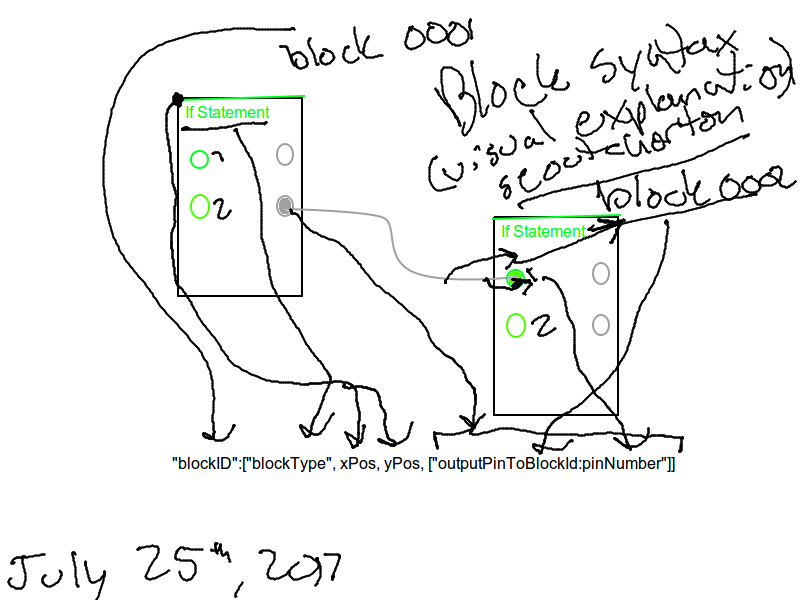 block 0001
Block syntax
(visual explanation)
scout-chorton
If Statement
1
2
block 0002
If Statement
1
2
"blockID":["blockType", xPos, yPos, ["outputPinToBlockId:pinNumber"]]
July 25th, 2017